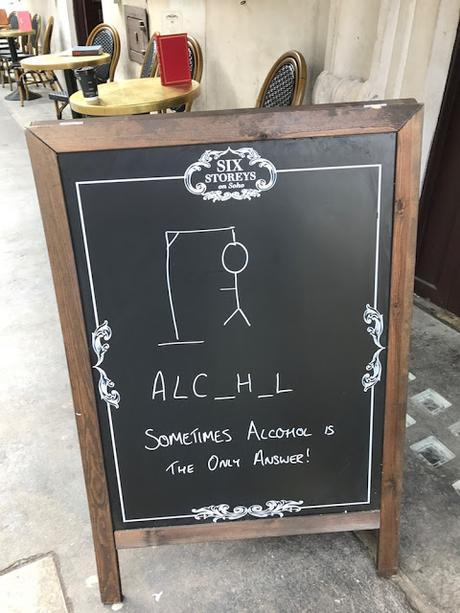 SIX
STOREYS
on Soho
ALC_H_L
SOMETIMES ALCOHOL IS
THE ONLY ANSWER!